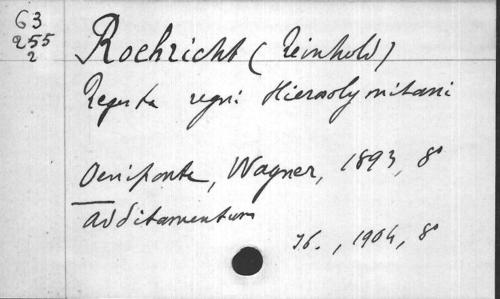 63
255
2
Roehricht (Reinhold)
Regesta regni Hierosolymitani
Oeniponte, Wagner, 1893, 8º
Additamentum
Ib., 1904, 8º